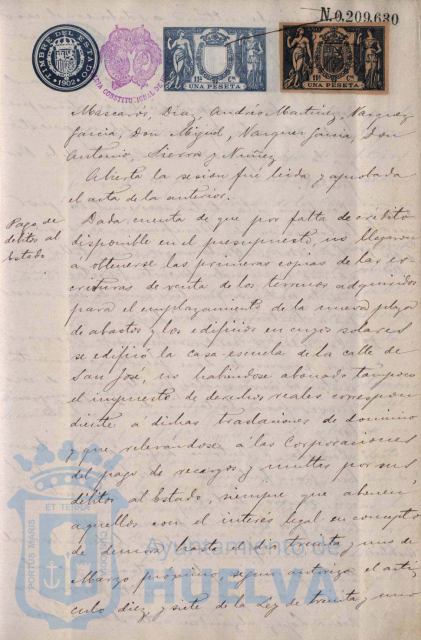 N.0.209.630
TIMBRE DEL ESTADO
1902
11ª Cª
UNA PESETA
11ª Cª
UNA PESETA
Mascarós, Díaz, Andrés Martínez, Vazquez
García, Don Miguel, Vazquez García, Don
Antonio, Sierra y Nuñez
Abierta la sesion fué leida y aprobada
el acta de la anterior.
Pago de
debitos al
Estado
Dada cuenta de que por falta de crédito
disponible en el presupuesto, no llegaron
á obtenerse las primeras copias de las es-
crituras de venta de los terrenos adquiridos
para el emplazamiento de la nueva plaza
de abastos y los edificios en cuyos solares
se edificó la casa escuela de la calle de
San José, no habiéndose abonado tampoco
el impuesto de derechos reales correspon
diente a dichas traslaciones de dominio
y que relevándose á las Corporaciones
del pago de recargos y multas por sus
débitos al Estado, siempre que abonen
aquellos con el interés legal en concepto
de demora hasta el dia treinta y uno de
Marzo proximo, segun autoriza el arti
culo diez y siete de la Ley de treinta y uno
PORTUS MARIS
ET TERRAE
CUSTODIA
Ayuntamiento de
HUELVA